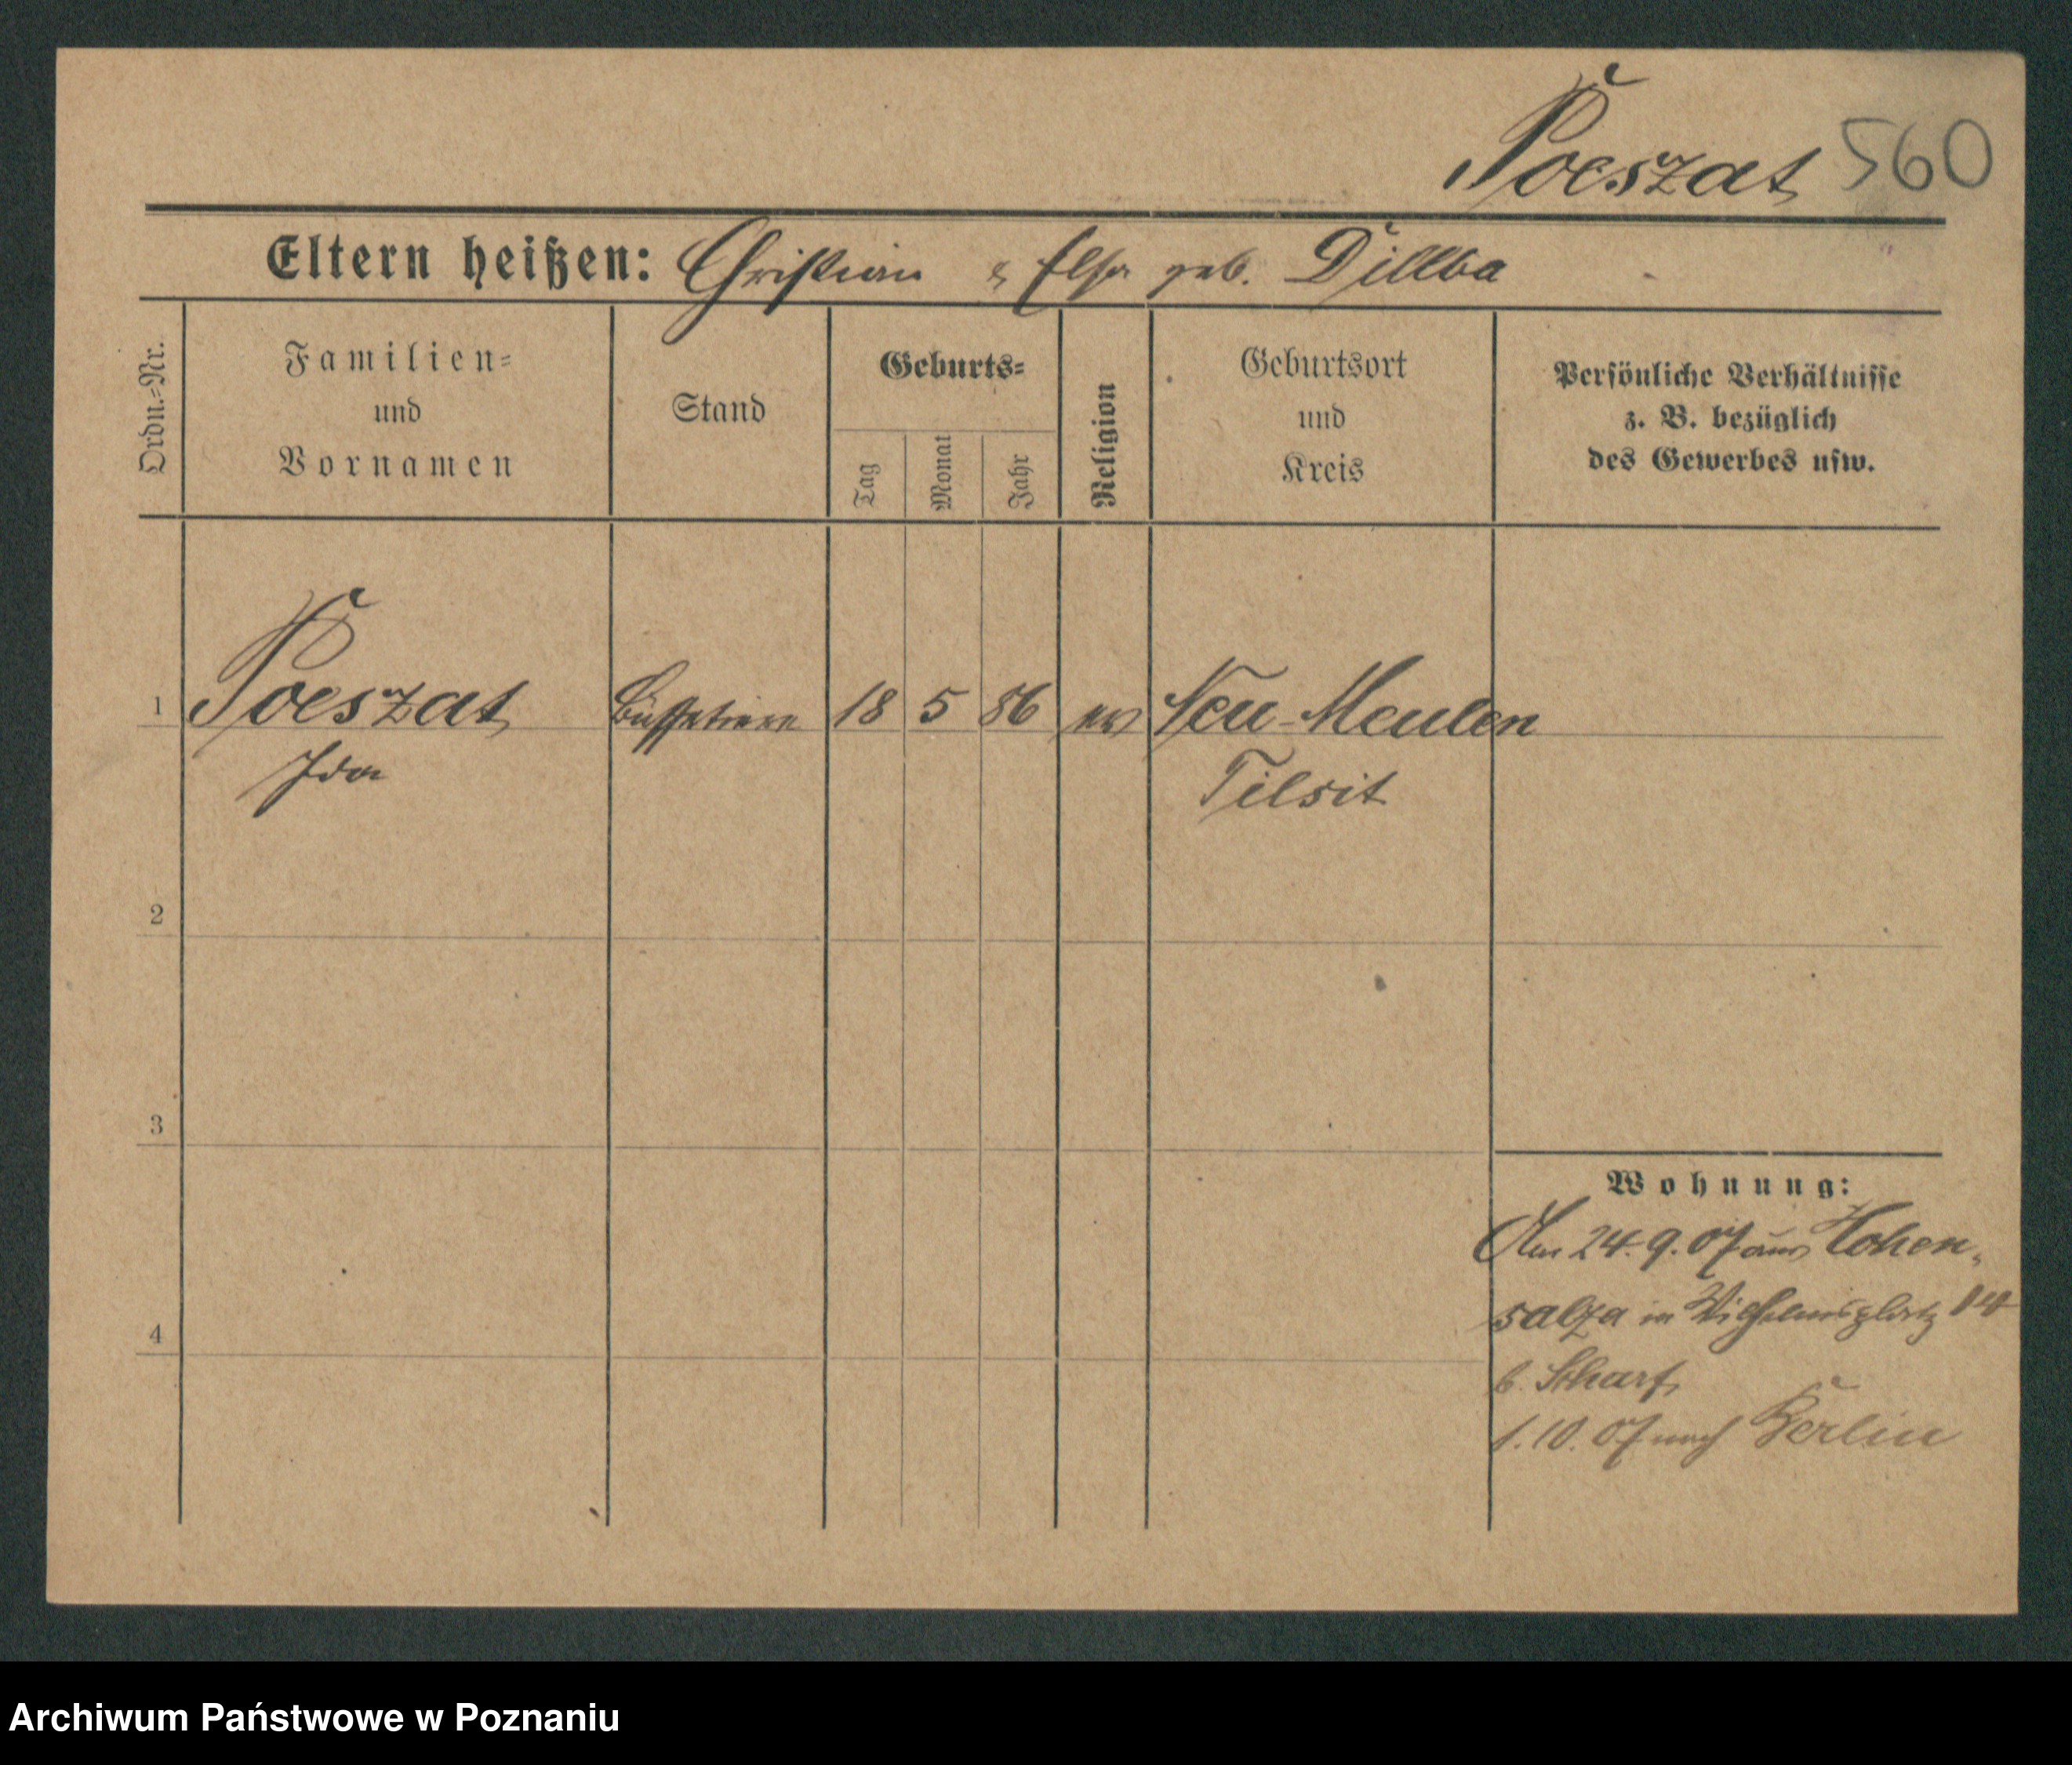 Poeszat 560
Eltern heißen: Christian & Elsa geb. Dillba
Ordn.=Nr.
Familien=
und
Vornamen
Stand
Geburts=
Tag
Monat
Jahr
Religion
Geburtsort
und
Kreis
Persönliche Verhältnisse
z. B. bezüglich
des Gewerbes usw.
1 Poeszat Büffetiere 18 5 86 ev Neu-Meulen
Ida Tilsit
2
3
Wohnung:
Am 24.9.07 aus Hohen-
salza in Wilhelmsplatz
4
b. Scharf,
1.10.07 nach Berlin
Archiwum Państwowe w Poznaniu